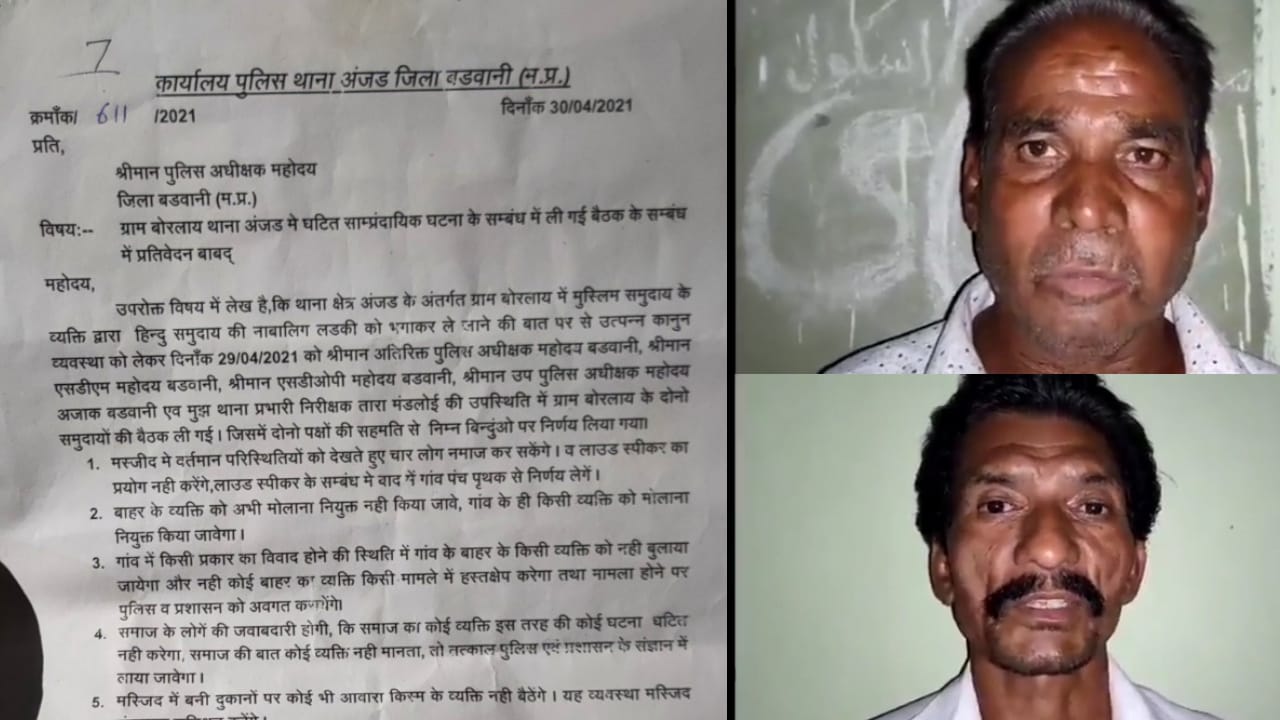 7
कार्यालय पुलिस थाना अंजड जिला बडवानी (म.प्र.)
क्रमाँक/ 611 /2021 दिनाँक 30/04/2021
प्रति,
श्रीमान पुलिस अधीक्षक महोदय
जिला बडवानी (म.प्र.)
विषय:-- ग्राम बोरलाय थाना अंजड मे घटित साम्प्रंदायिक घटना के सम्बंध में ली गई बैठक के सम्बंध
में प्रतिवेदन बाबद्
महोदय,
उपरोक्त विषय में लेख है,कि थाना क्षेत्र अंजड के अंतर्गत ग्राम बोरलाय में मुस्लिम समुदाय के
व्यक्ति द्वारा हिन्दु समुदाय की नाबालिग लडकी को भगाकर ले जाने की बात पर से उत्पन्न कानुन
व्यवस्था को लेकर दिनाँक 29/04/2021 को श्रीमान अतिरिक्त पुलिस अधीक्षक महोदय बडवानी, श्रीमान
एसडीएम महोदय बडवानी, श्रीमान एसडीओपी महोदय बडवानी, श्रीमान उप पुलिस अधीक्षक महोदय
अजाक बडवानी एव मुझ थाना प्रभारी निरीक्षक तारा मंडलोई की उपस्थिति में ग्राम बोरलाय के दोनो
समुदायों की बैठक ली गई। जिसमें दोनो पक्षों की सहमति से निम्न बिन्दुंओ पर निर्णय लिया गया।
1. मस्जीद मे वर्तमान परिस्थितियों को देखते हुए चार लोग नमाज कर सकेंगे। व लाउड स्पीकर का
प्रयोग नही करेंगे,लाउड स्पीकर के सम्बंध मे बाद में गांव पंच पृथक से निर्णय लेगें।
2. बाहर के व्यक्ति को अभी मोलाना नियुक्त नही किया जावे, गांव के ही किसी व्यक्ति को मोलाना
नियुक्त किया जावेगा।
3. गांव में किसी प्रकार का विवाद होने की स्थिति में गांव के बाहर के किसी व्यक्ति को नही बुलाया
जायेगा और नही कोई बाहर का व्यक्ति किसी मामले में हस्तक्षेप करेगा तथा मामला होने पर
पुलिस व प्रशासन को अवगत
4. समाज के लोगें की जवाबदारी होगी, कि समाज का कोई व्यक्ति इस तरह की कोई घटना घटित
नही करेगा, समाज की बात कोई व्यक्ति नही मानता, तो तत्काल पुलिस एवं प्रशासन के संज्ञान में
लाया जावेगा।
5. मस्जिद में बनी दुकानों पर कोई भी आवारा किस्म के व्यक्ति नही बैठेंगे। यह व्यवस्था मस्जिद